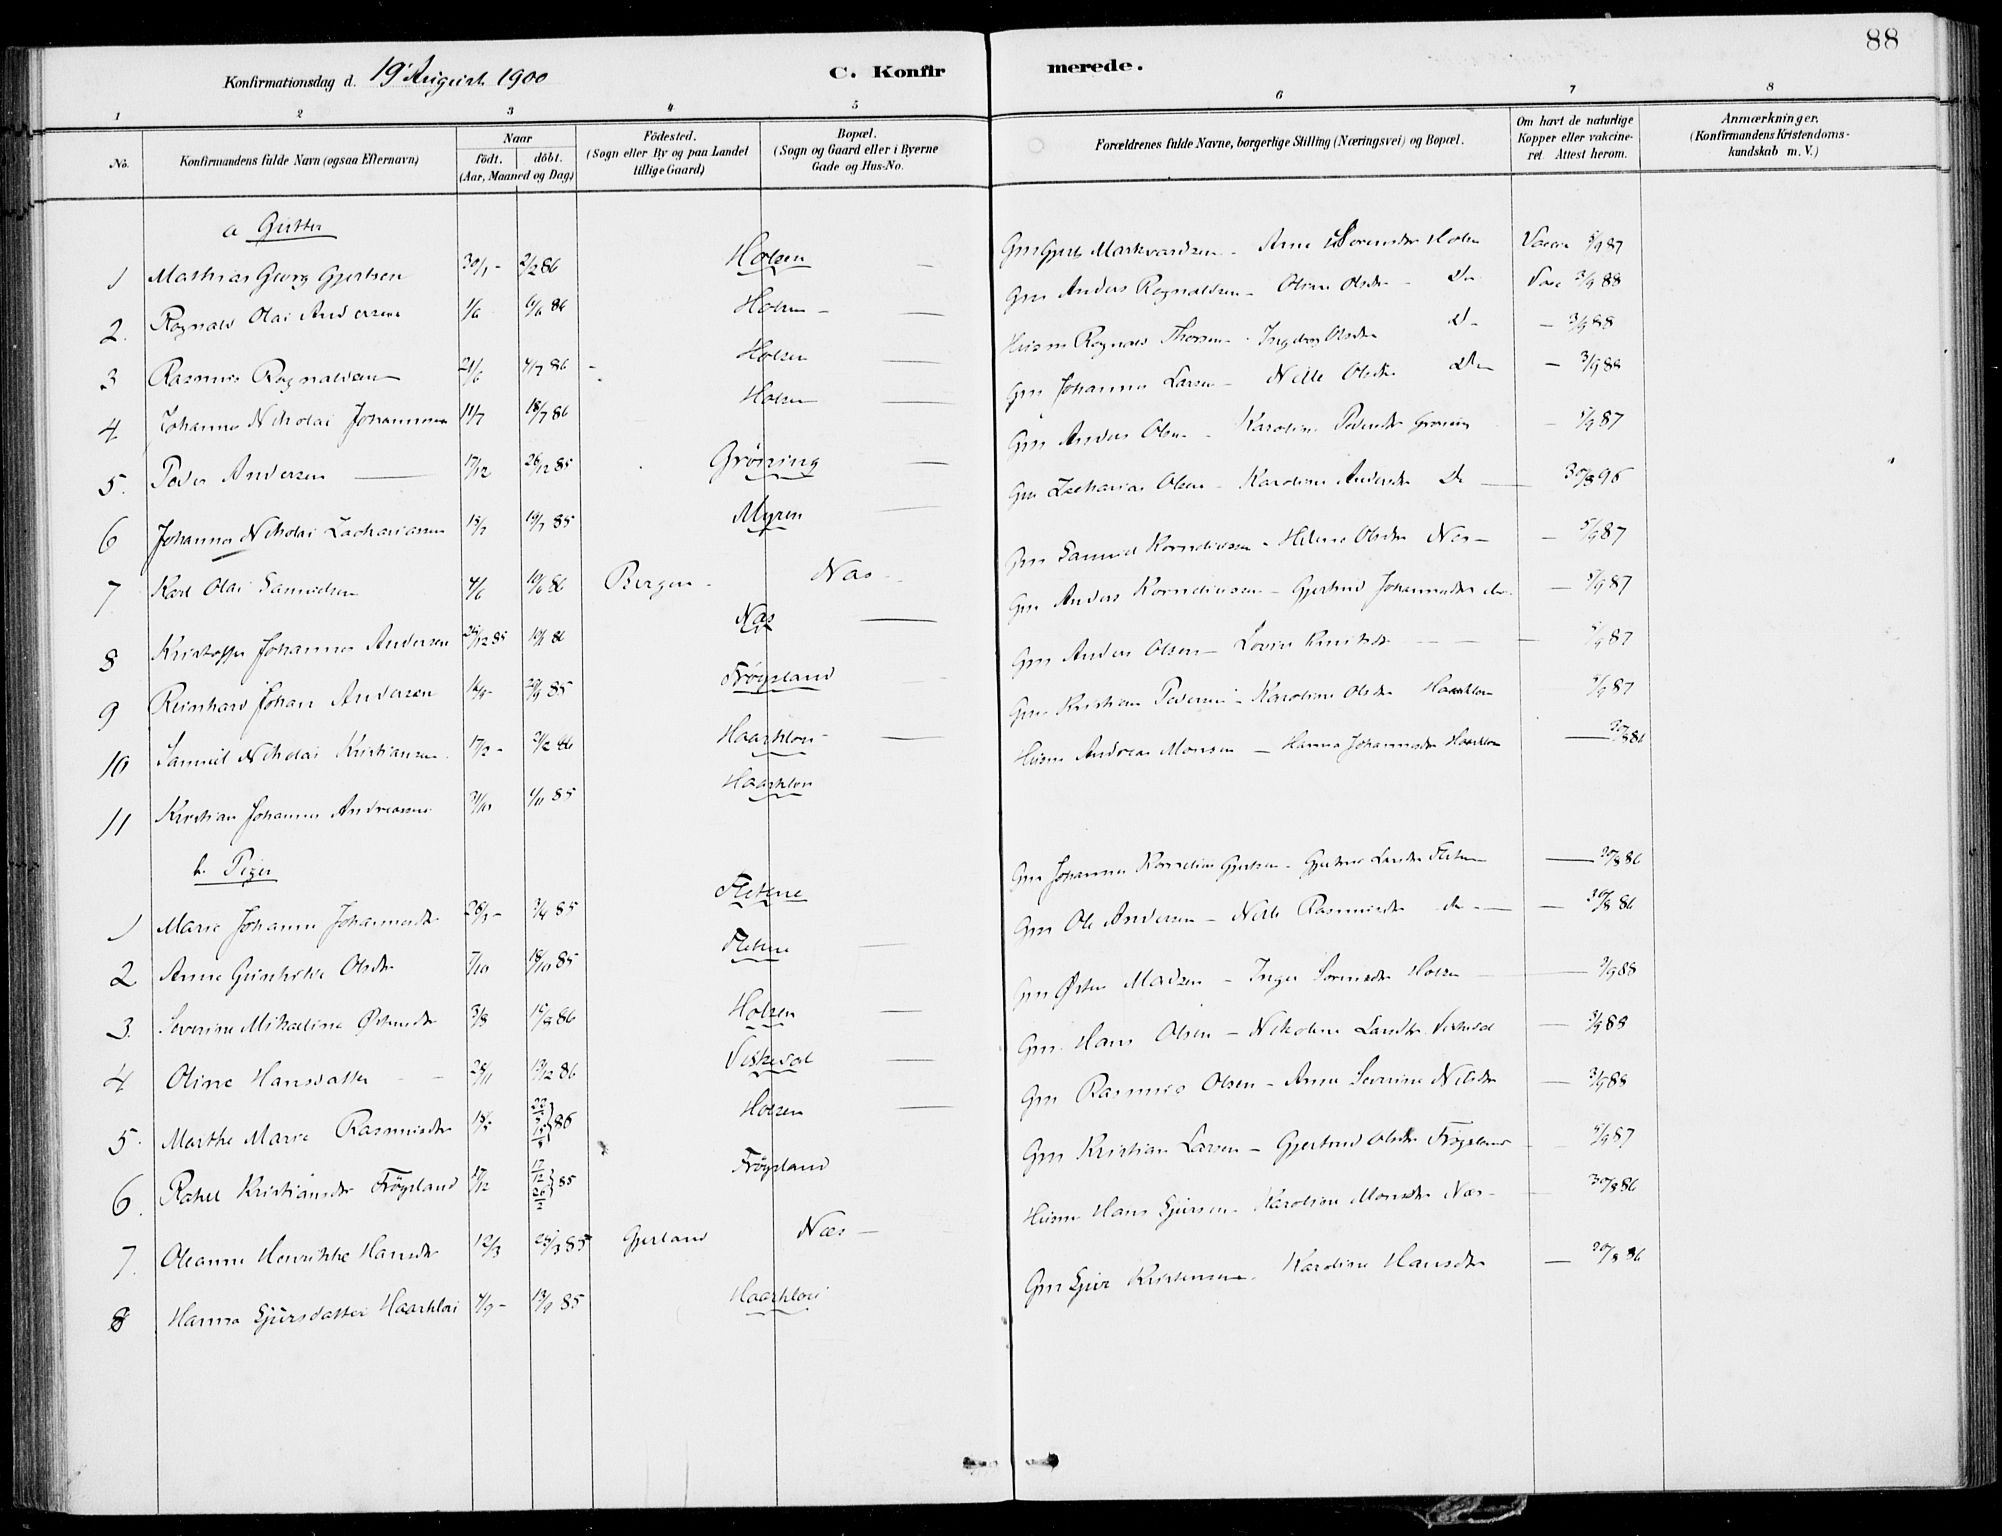 88
Konfirmationsdag d. 19' August 1900
C. Konfirmerede.
1 2 3 4 5 6 7 8
No.
Konfirmandens fulde Navn (ogsaa Efternavn)
Naar
födt. döbt.
(Aar, Maaned og Dag)
Födested.
(Sogn eller By og paa Landet tillige Gaard)
Bopæl.
(Sogn og Gaard eller i Byerne Gade og Hus-No.
Forældrenes fulde Navne, borgerlige Stilling (Næringsvei) og Bopæl.
Om havt de naturlige Kopper eller vakcineret. Attest herom.
Anmærkninger.
(Konfirmandens Kristendomskundskab m. V.)
a Gutter
1 Mathias Georg Gjertsen 30/1 - 2/2 86 Holsen — Gm Gjert Markvardsen - Anne Sorensdtr Holsen Vaccin 5/9 87
2. Rognald Olai Andersen 1/6 6/6 86 Holsen — Gm Anders Rognaldsen - Oline Olsdtr - Do Vacc 3/9 88
3 Rasmus Rognaldsen 21/6 4/7 86 - Holsen — Husm Rognald Thorsen - Ingeborg Olsdtr Do — 3/9 88
4 Johannes Nikolai Johannessen 11/7 18/7 86 Holsen — Gm Johannes Larsen - Nille Olsdtr Do — 3/9 88
5. Peder Andersen — 17/12 26/12 85 Gröning — Gm Anders Olsen - Karoline Pedersdtr Gröning — 5/9 87
6 Johannes Nikolai Zachariassen 15/7 19/7 85 Myren — Gm Zacharias Olsen - Karoline Andersdtr Do — 30/8 96
7 Karl Olai Samuelsen 4/6 10/6 86 Bergen - Nas - Gm Samuel Korneliussen - Helene Olsdtr Nes — 5/9 87
8 Kristoffer Johannes Andersen 26/12 85 10/1 86 Nas — Gm Anders Korneliussen - Gjertrud Johannesdtr do — 5/9 87
9 Reinhard Johan Andersen 16/9 - 20/9 85 Frögsland — Gm Anders Olsen - Lovise Knutsdtr — 5/9 87
10 Samuel Nikolai Kristiansen 17/2 - 21/2 86 Haarklou - Gm Kristian Pedersen - Karoline Olsdtr Haarklou — 5/9 87
11 Kristian Johannes Andreassen 31/10 4/11 85 Haarklou Husm Andreas Monsen — Hanna Johannesdtr Haarklou — 30/8 86
b. Piger
1 Marie Johanne Johannesdtr 28/3 - 3/4 85 Flekne Gm Johannes Kornelius Gjertsen - Gjertrud Larsdtr Flekne — 30/8 86
2 Anne Gurine Olsdtr 7/10 18/10 85 Flekne — Gm Ole Andersen - Nille Rasmusdtr do — 30/8 86
3. Severine Mikaline Östensdtr 3/8 15/8 86 Holsen — Gm Östen Madsen - Inger Sorensdtr Holsen — 3/9 88
4 Oline Hansdatter 28/11 19/12 86 Viskedal — Gm Hans Olsen - Nikoline Larsdtr Viskedal — 3/9 88
5. Marthe Marie Rasmusdtr 86 Holsen — Gm Rasmus Olsen - Anne Severine Nilsdtr — 3/9 88
6. Rakel Kristiansdtr Frögsland 17/12 85 Frögsland Gm Kristian Larsen - Gjertrud Olsdtr Frögsland 5/9 87
7. Oleanne Henrikke Hansdtr 12/3 25/3 85 Gjerland Næs — Husm Hans Sjursen - Karoline Monsdtr Næs - 30/8 86
8 Hanna Sjursdatter Haarklou 4/9 - 13/9 85 Haarklou Gm Sjur Kristensen - Karoline Hansdtr — 30/8 86